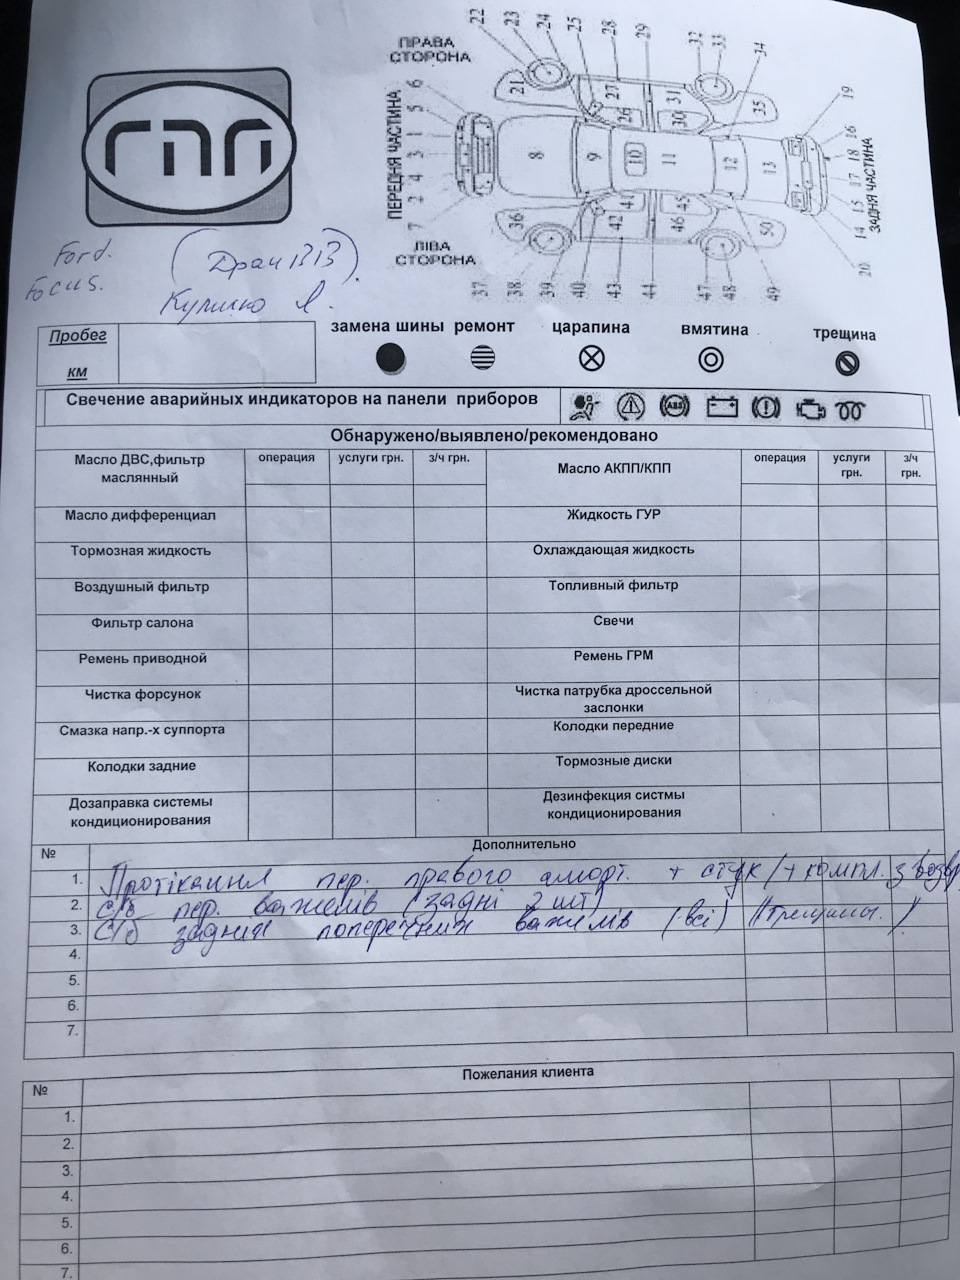 ПРАВА СТОРОНА
22 23 24 25 28 29 32 33 34
21 27 26 31 30 35
ПЕРЕДНЯ ЧАСТИНА
6 5 1 3 4 2 7
8 9 10 11 12 13
19 16 18 17 15 14 20
ЗАДНЯ ЧАСТИНА
36 42 41 46 45 50
ЛІВА СТОРОНА
37 38 39 40 43 44 47 48 49
ГПП
Ford. Focus.
Пробег
км
замена шины ремонт царапина вмятина трещина
Свечение аварийных индикаторов на панели приборов
ABS
Обнаружено/выявлено/рекомендовано
Масло ДВС,фильтр маслянный операция услуги грн. з/ч грн. Масло АКПП/КПП операция услуги грн. з/ч грн.
Масло дифференциал Жидкость ГУР
Тормозная жидкость Охлаждающая жидкость
Воздушный фильтр Топливный фильтр
Фильтр салона Свечи
Ремень приводной Ремень ГРМ
Чистка форсунок Чистка патрубка дроссельной заслонки
Смазка напр.-х суппорта Колодки передние
Колодки задние Тормозные диски
Дозаправка системы кондиционирования Дезинфекция систмы кондиционирования
№ Дополнительно
1. Протікання пер. правого аморт. + стук (+ компл.
2. С/б пер. важелів (задні 2 шт)
3. С/б задних поперечних важелів (всі) (трещины.)
4.
5.
6.
7.
№ Пожелания клиента
1.
2.
3.
4.
5.
6.
7.